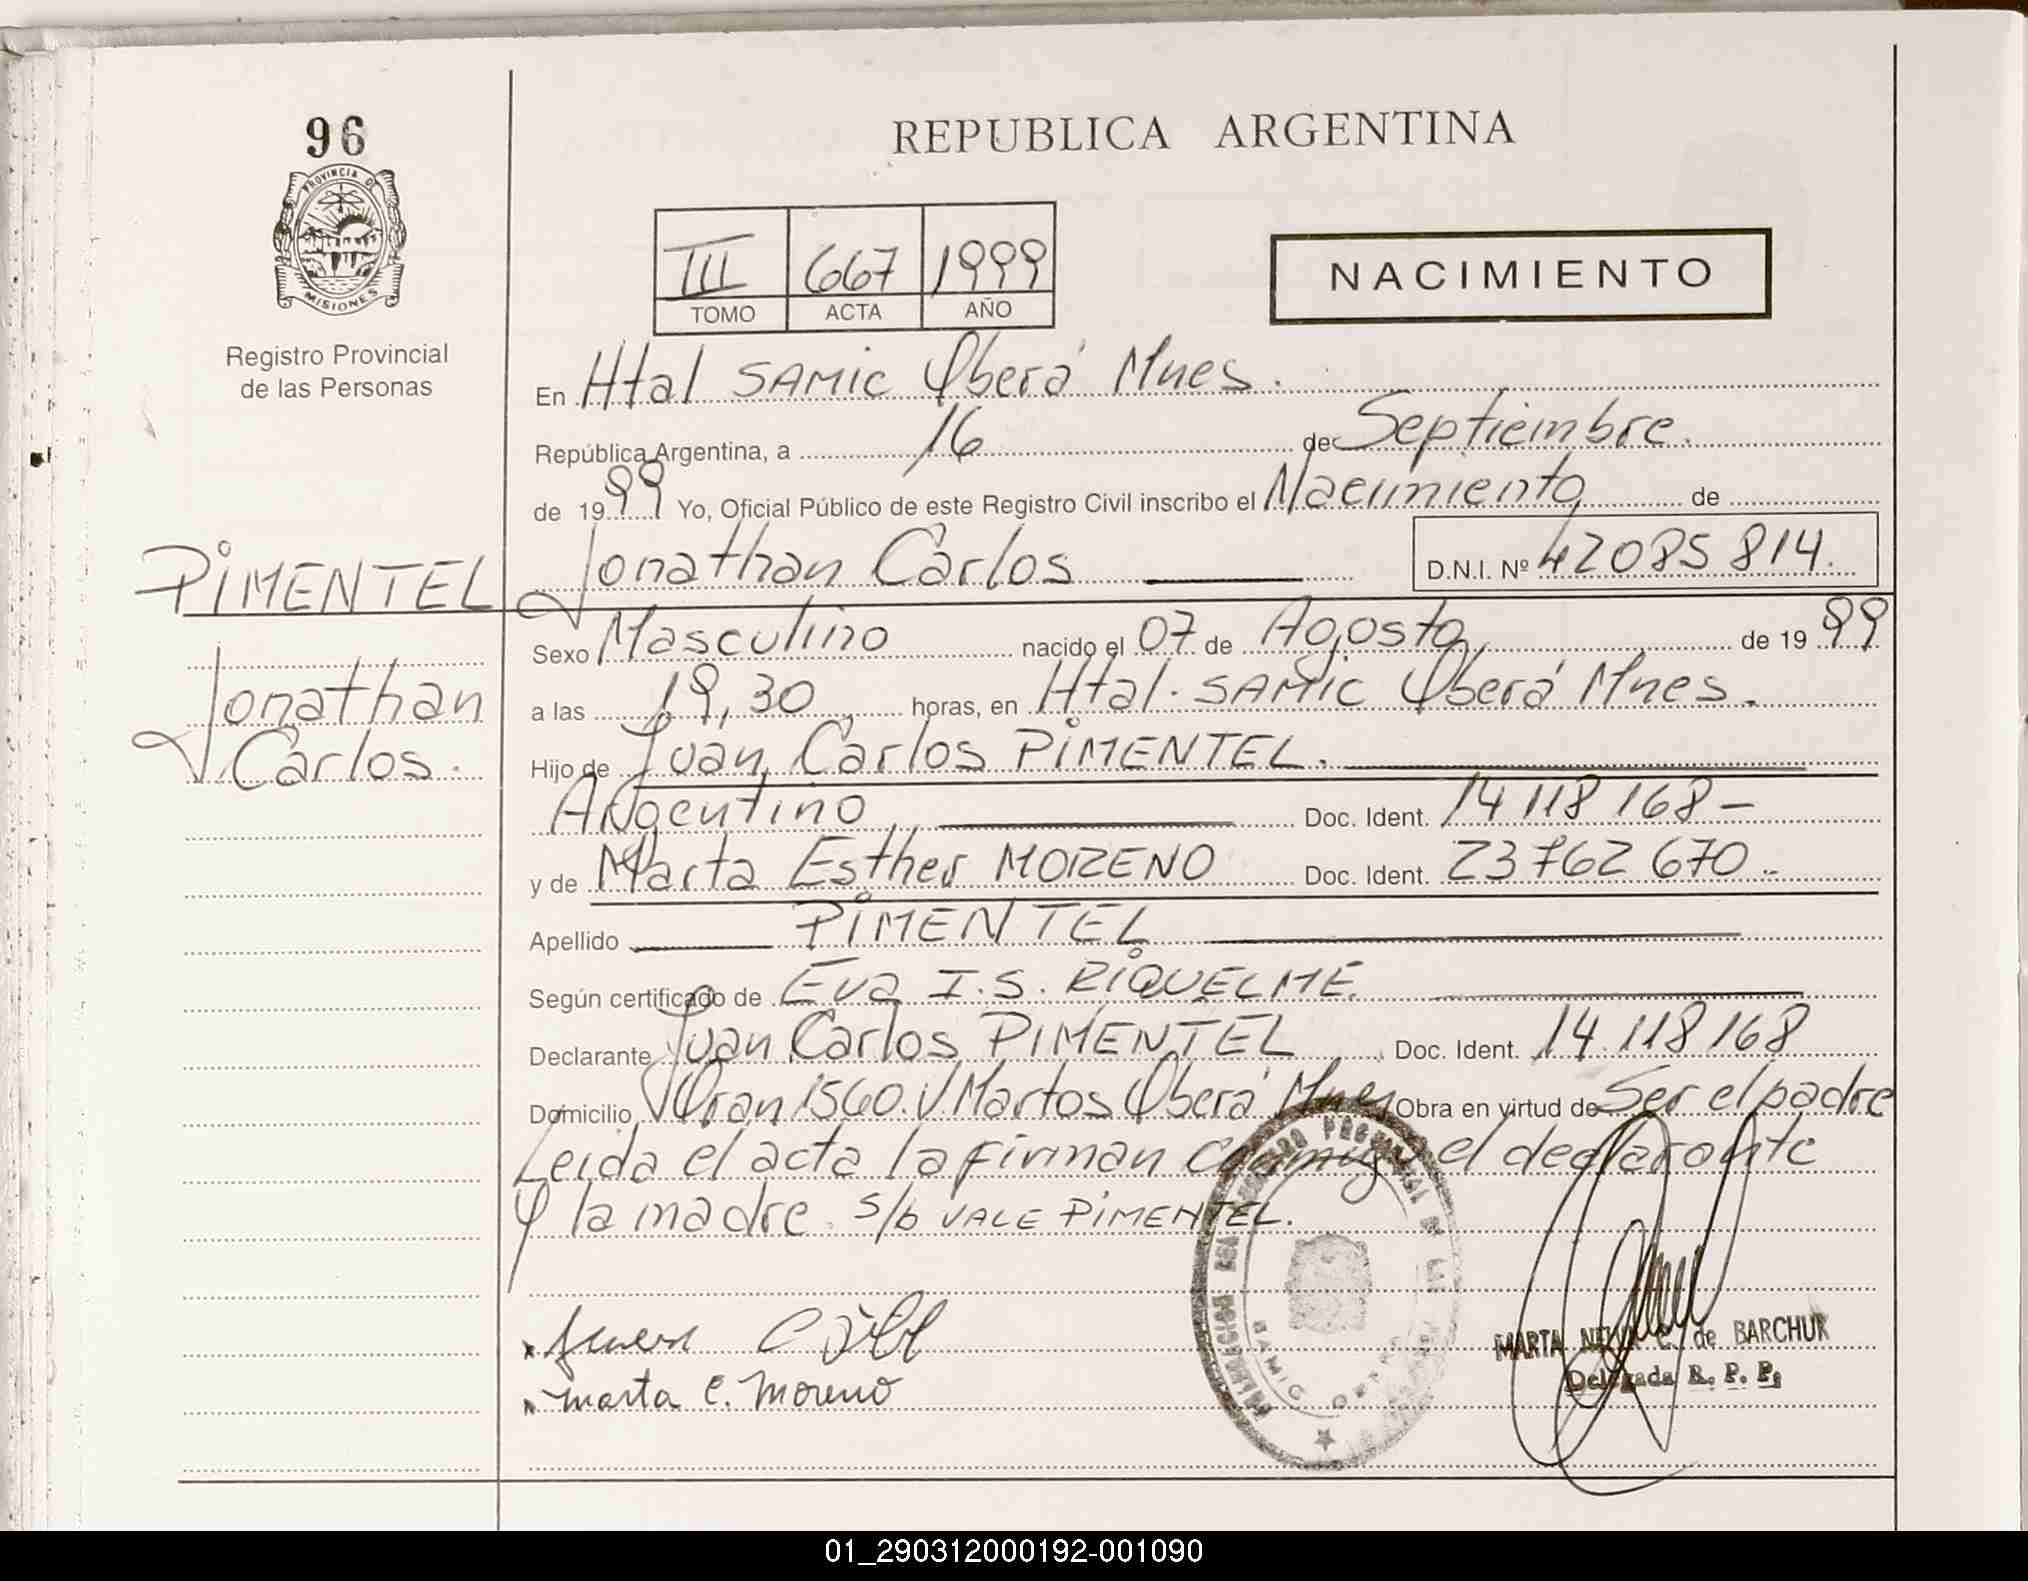 96
PROVINCIA D
MISIONES
Registro Provincial
de las Personas
REPUBLICA ARGENTINA
III 667 1999
TOMO ACTA AÑO
NACIMIENTO
En Htal SAMIC Oberá Mnes.
República Argentina, a 16 de Septiembre.
de 1999 Yo, Oficial Público de este Registro Civil inscribo el Nacimiento de
PIMENTEL
Jonathan Carlos D.N.I. Nº 42085814.
Jonathan
Carlos.
Sexo Masculino nacido el 07 de Agosto de 1999
a las 19,30 horas, en Htal. SAMIC Oberá Mnes.
Hijo de Juan Carlos PIMENTEL.
Argentino Doc. Ident. 14 118 168-
y de Marta Esther MORENO Doc. Ident. 23762670.
Apellido PIMENTEL
Según certificado de Eva I.S. RIQUELME.
Declarante Juan Carlos PIMENTEL Doc. Ident. 14.118168
Domicilio Oran 1560. V. Martos Oberá Mnes Obra en virtud de Ser el padre
Leida el acta la firman conmigo el declarante
y la madre. s/b VALE PIMENTEL.
marta E. Moreno
SAMIC OBERA
MARTA C. de BARCHUK
Delegada R. P. P.
01_290312000192-001090